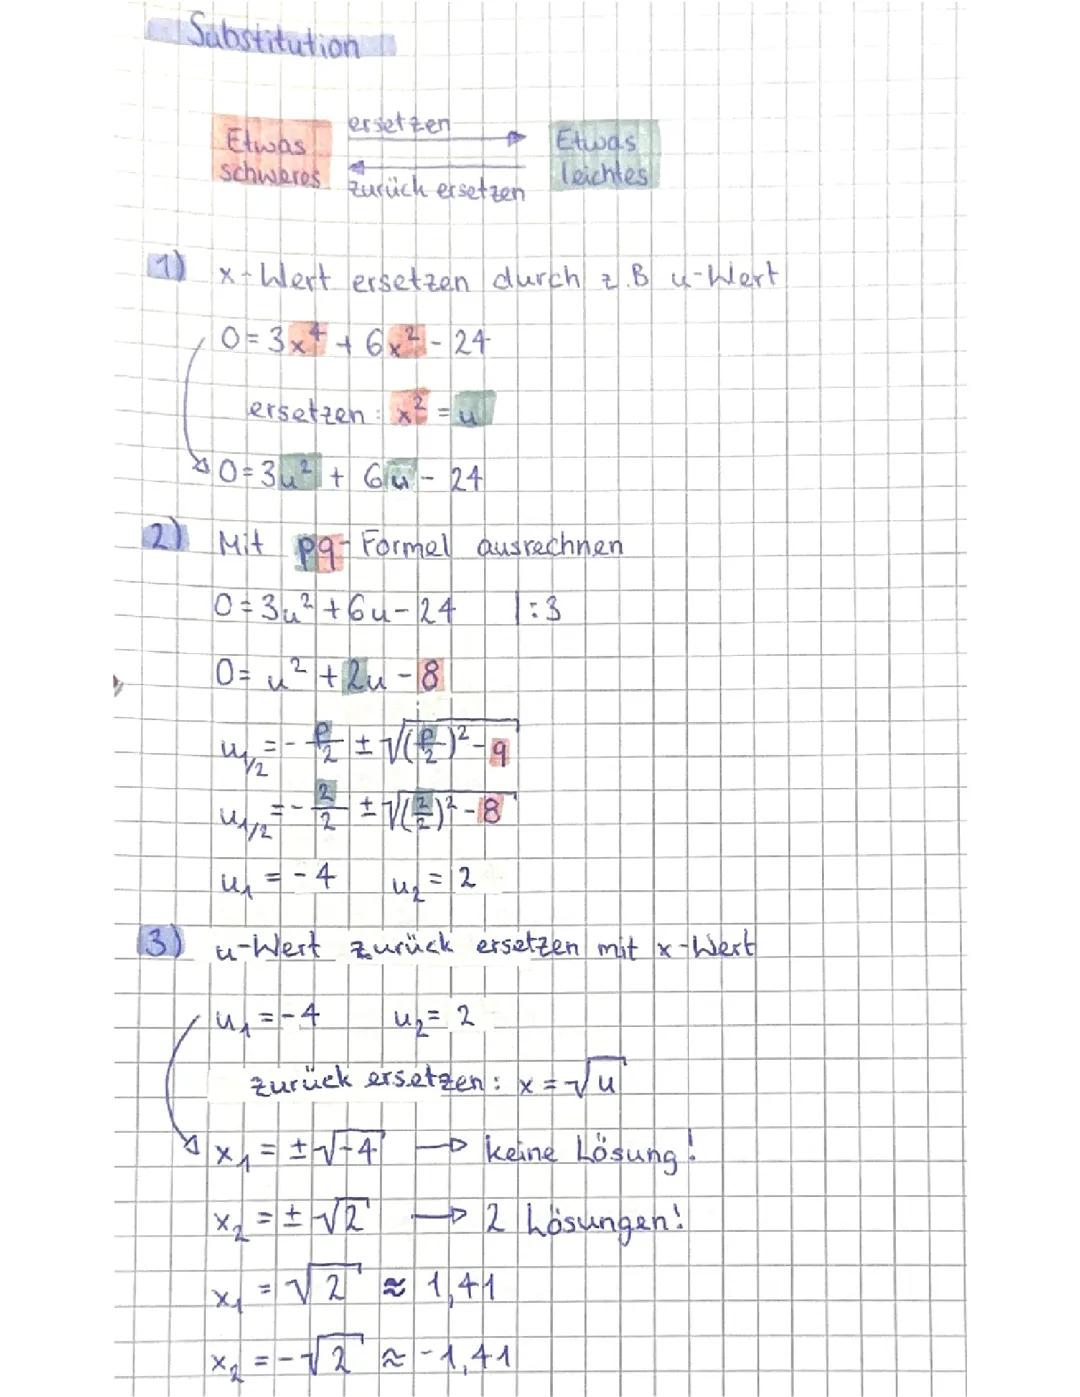 Substitution
Etwas schweres
ersetzen
zurück ersetzen
Etwas leichtes
1) x-Wert ersetzen durch z.B u-Wert
0 = 3x⁴ + 6x² - 24
ersetzen: x² = u
0 = 3u² + 6u - 24
2) Mit pq-Formel ausrechnen
0 = 3u² + 6u - 24 | : 3
0 = u² + 2u - 8
u₁/₂ = - p/2 ± √((p/2)² - q)
u₁/₂ = - 2/2 ± √((2/2)² - 8)
u₁ = - 4 u₂ = 2
3) u-Wert zurück ersetzen mit x-Wert
u₁ = - 4 u₂ = 2
zurück ersetzen: x = √u
x₁ = ± √-4 → keine Lösung!
x₂ = ± √2 → 2 Lösungen!
x₁ = √2 ≈ 1,41
x₂ = - √2 ≈ - 1,41